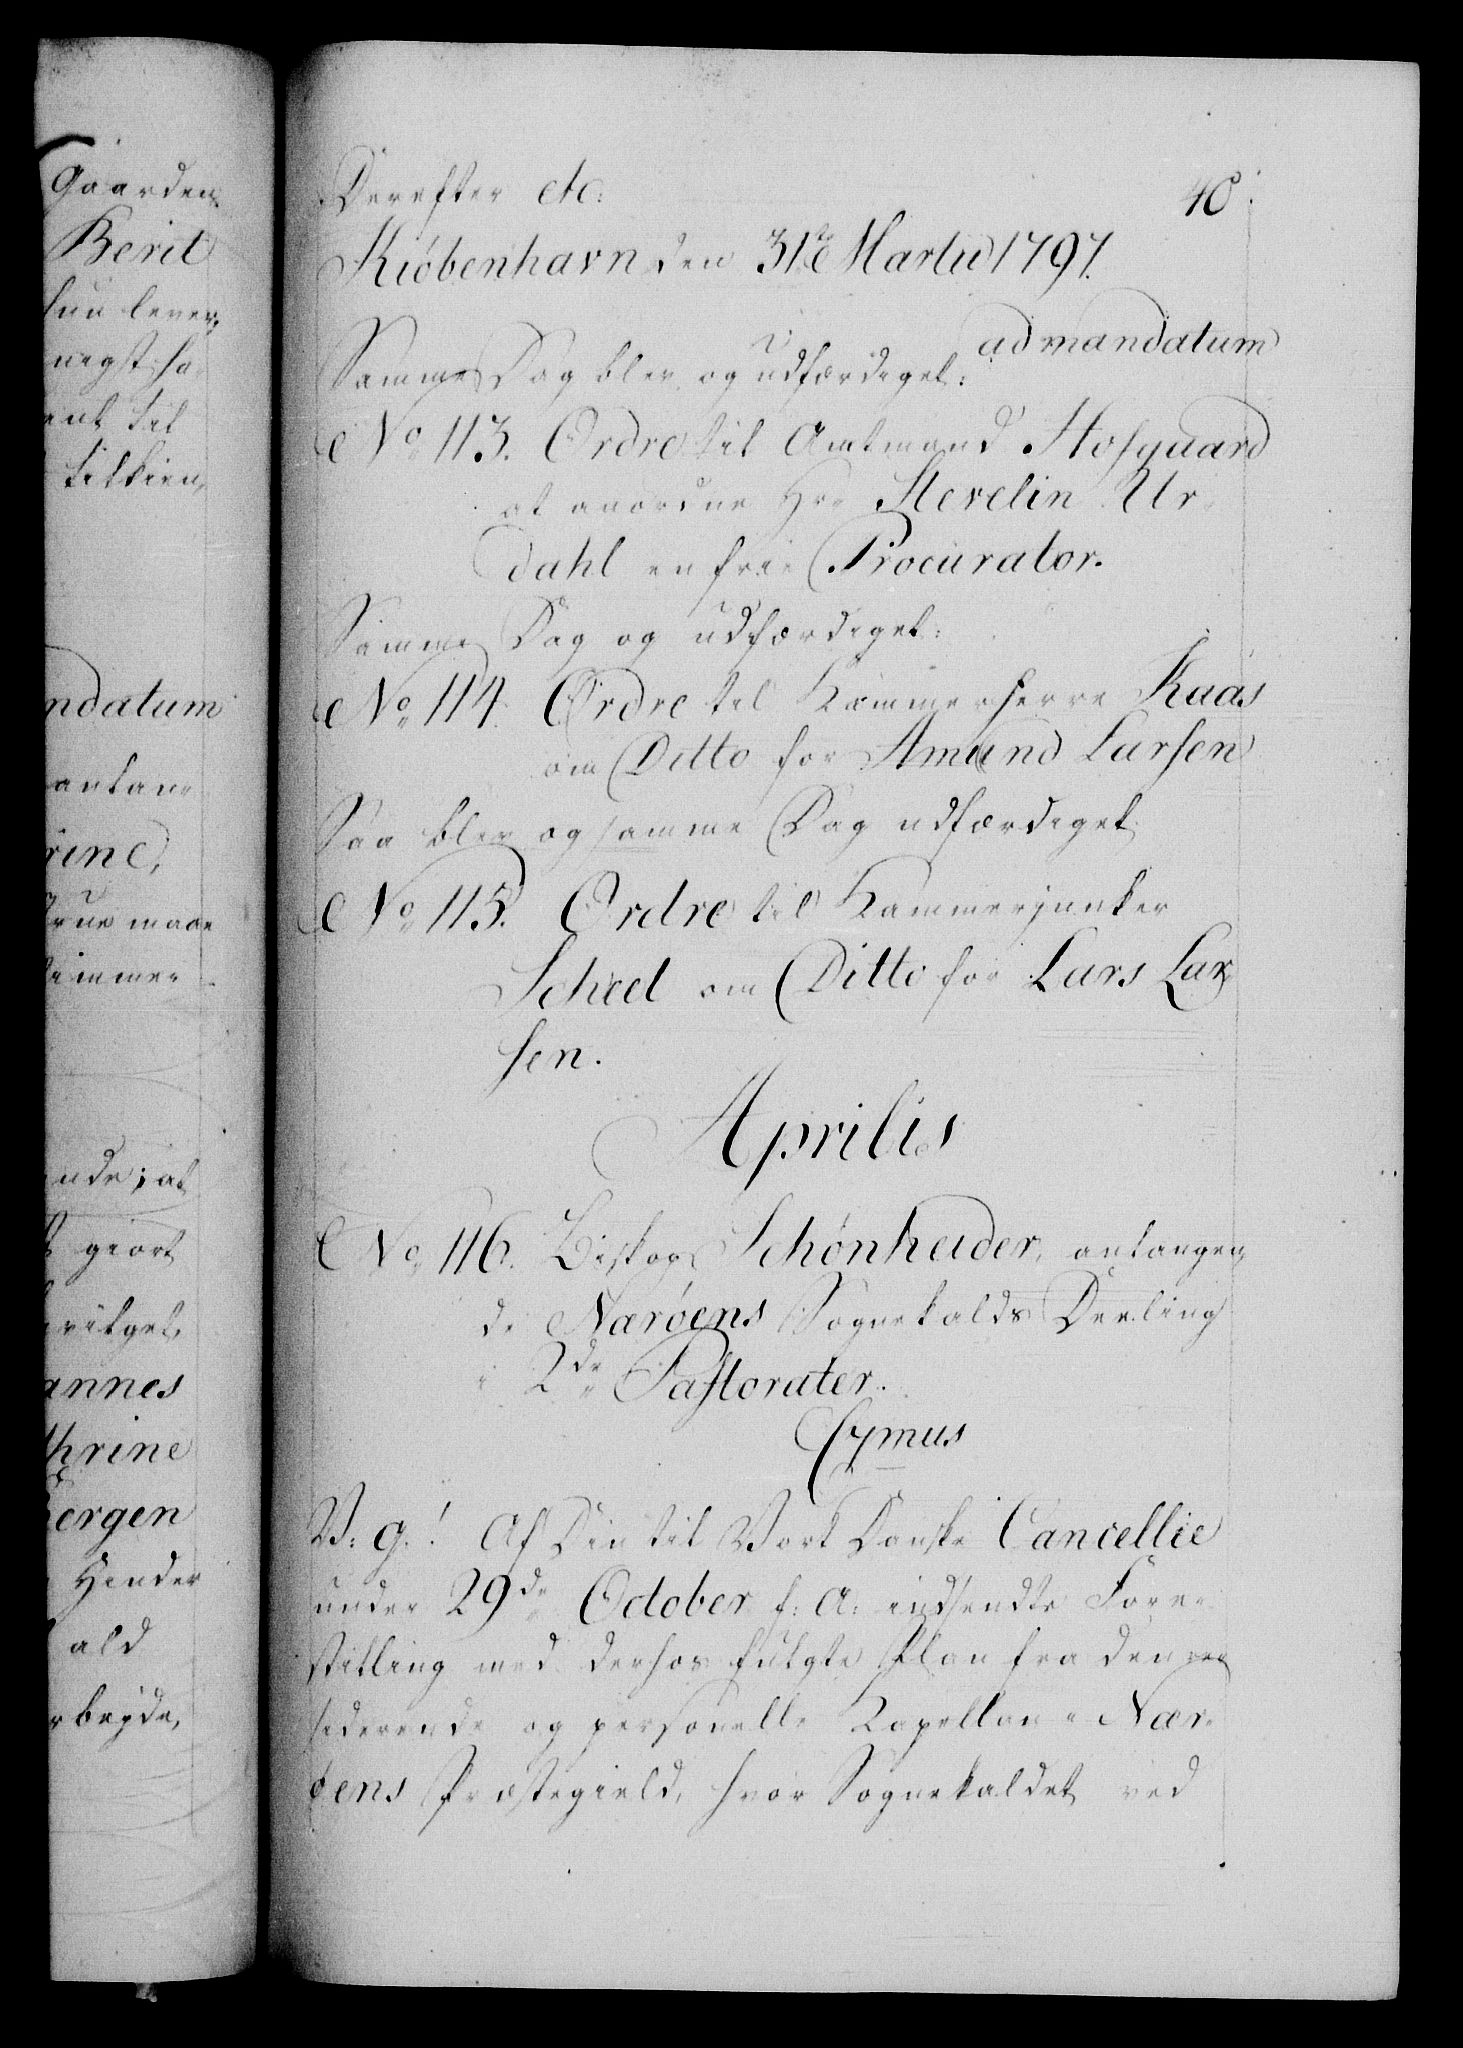 Gaarden
Berit
hun lever,
negst ha-
ent til
tilkien,
ndatum
antan-
rine,
Frue maae
Timmer
ende, at
giort
vilget,
annes
thrine
Bergen
Hender
ald
rbeyde,
Derefter etc: 40.
Kiøbenhavn den 31te Martii 1797.
ad mandatum
Samme Dag blev og udfærdiget:
No 113. Ordre til Amtmand Hofgaard
at anordne Hr. Stevelin Ur-
dahl en frie Procurator.
Samme Dag og udfærdiget:
No 114. Ordre til Kammerherre Kaas
om Ditto for Amund Larsen
Saa blev og samme Dag udfærdiget
No 115. Ordre til Kammerjunker
Scheel om Ditto for Lars Lar-
sen.
Aprilis
No 116. Biskop Schønheider, anlangen-
de Nærøens Sognekalds Deeling
i 2de Pastorater.
C7mus
V: g.! Af Din til Vort Danske Cancellie
under 29de October f: A: indsendte Fore-
stilling med derhos fulgte Plan fra den re-
siderende og personelle Kapellan i Nær-
øens Præstegield, hvor Sognekaldet ved